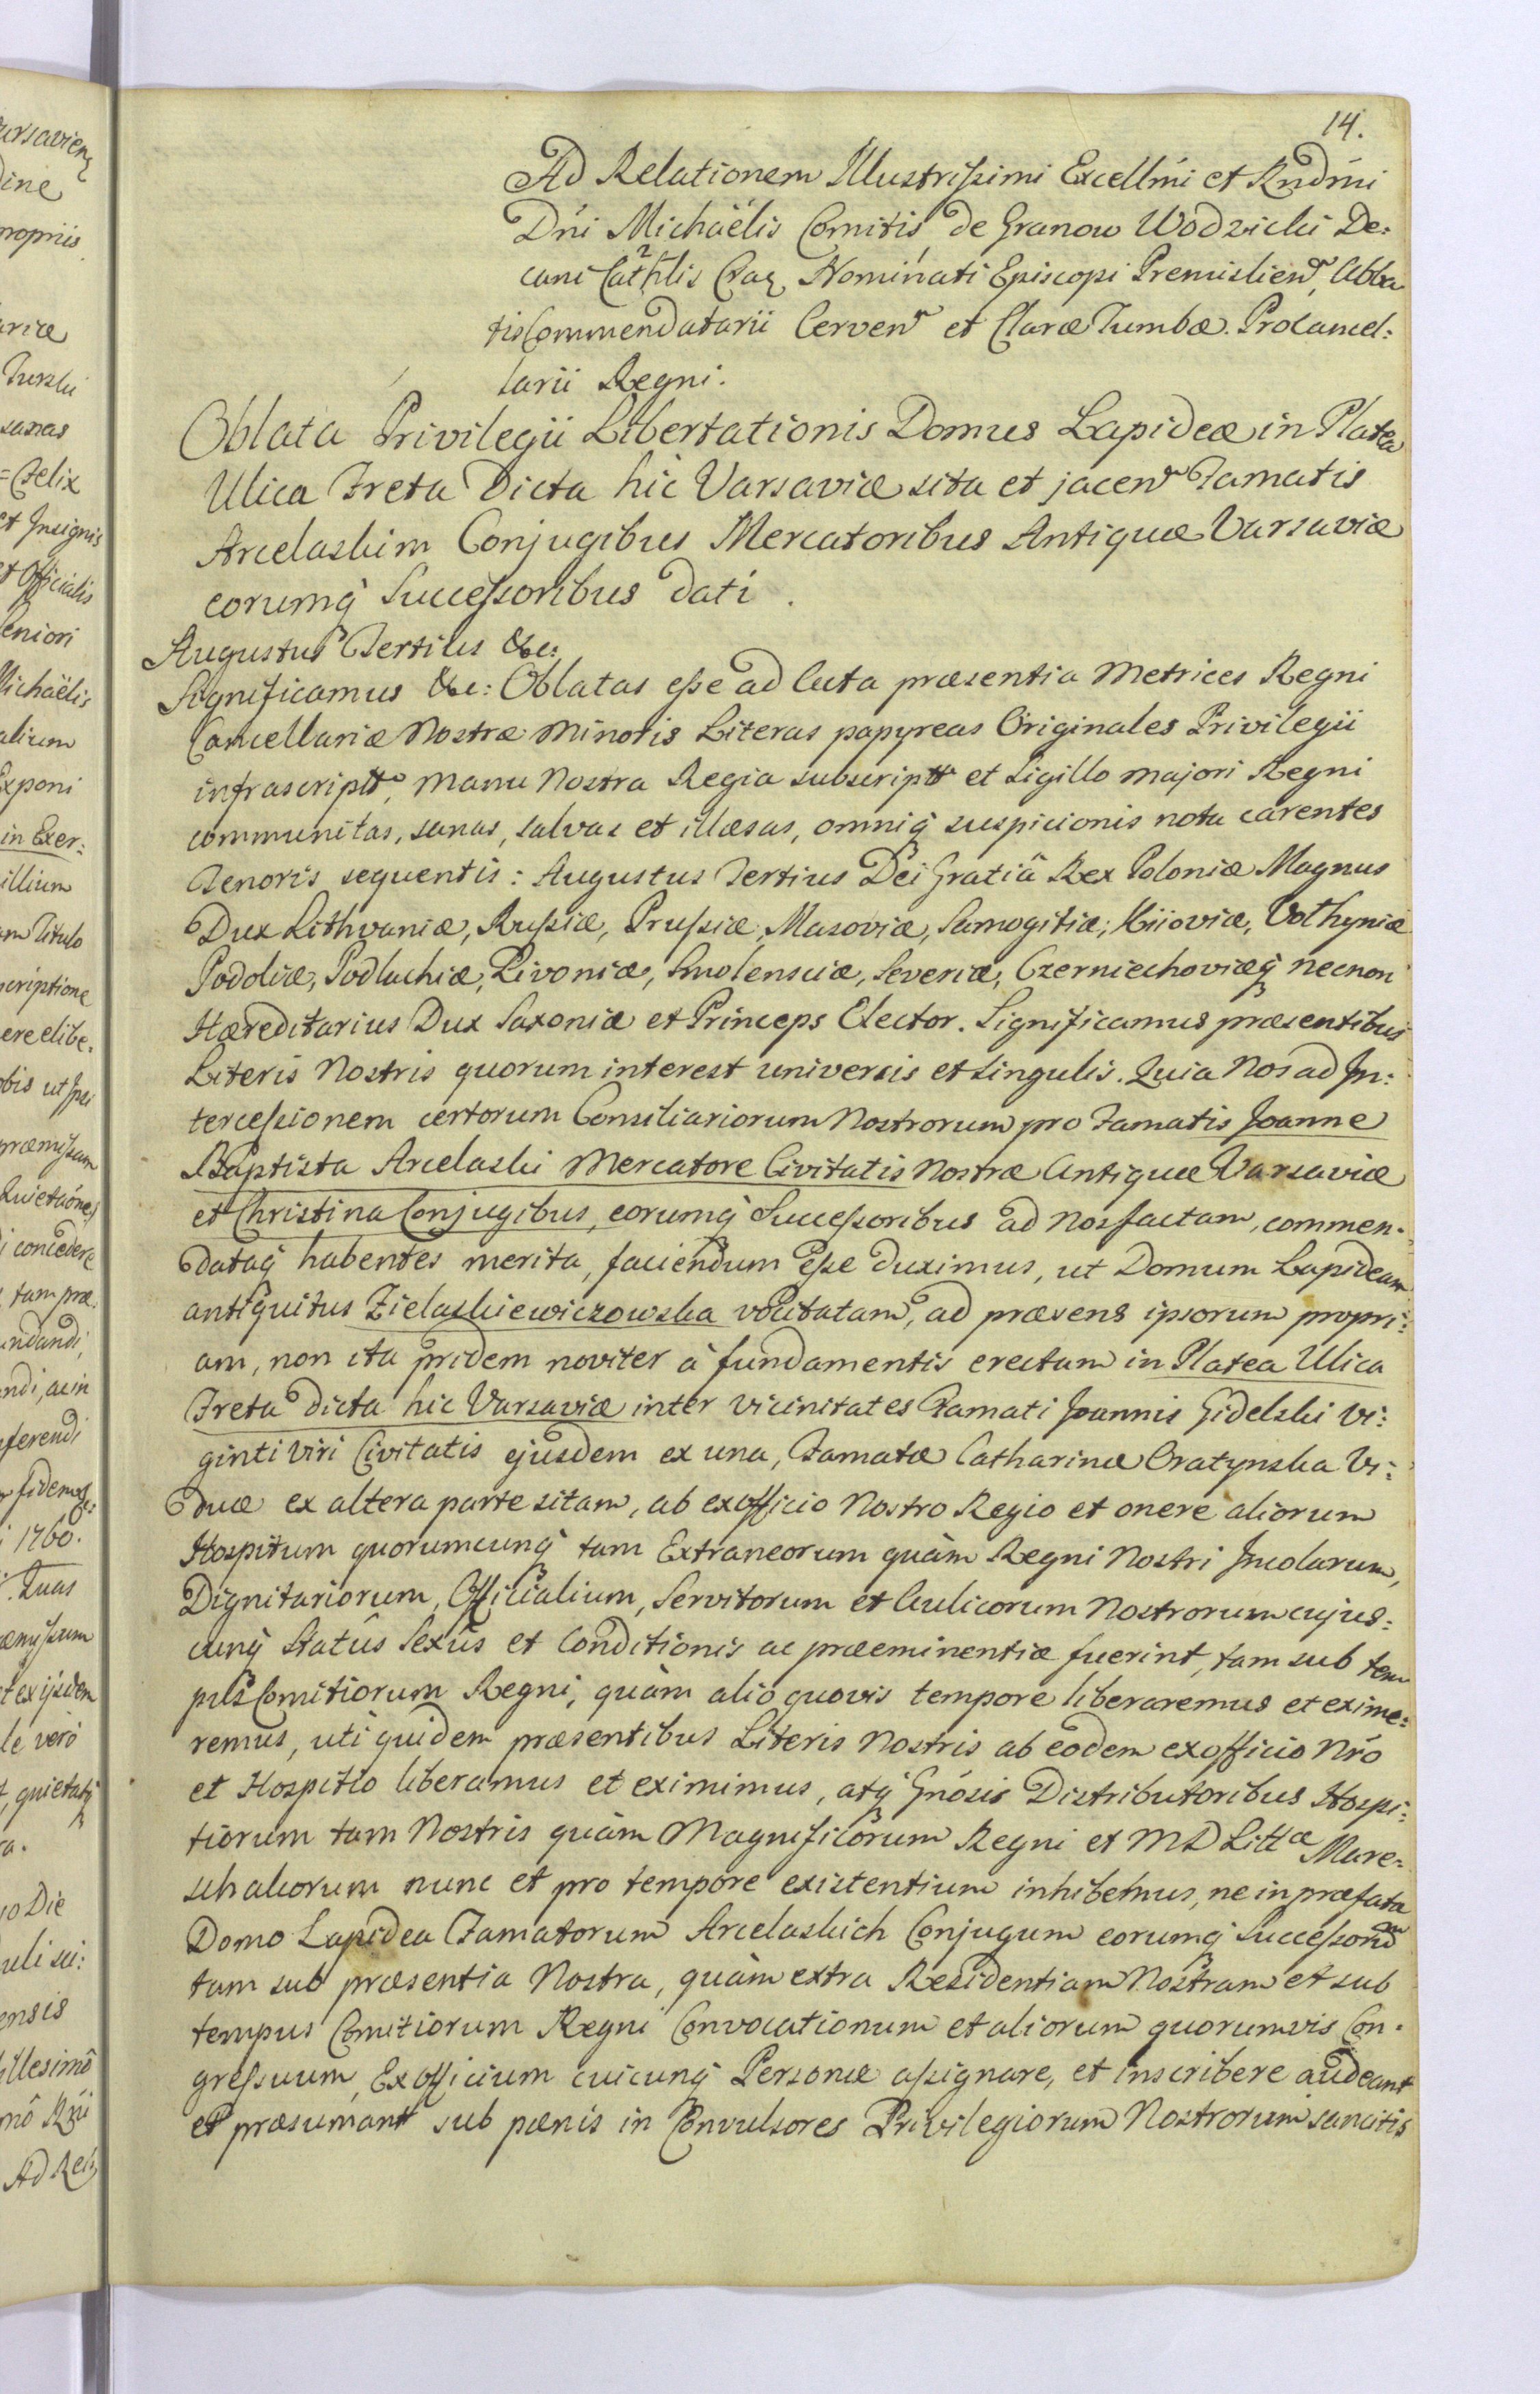 14.
Ad Relationem Illustrissimi Excellm̃i et Rndm̃i
Dn̄i Michaëlis Comitis de Granow Wodzicki De:
cani Cathlis Crac Nominati Episcopi Premislien, Abba
tis Commendatarii Cerven et Claræ Tumbæ. Procancel:
larii Regni.
Oblata Privilegii Libertationis Domus Lapideæ in Platea
Ulica Freta Dicta hic Varsaviæ sita et jacen Famatis
Arcelaskim Conjugibus Mercatoribus Antiquæ Varsaviæ
eorumq̃ Successoribus dati.
Augustus Tertius &c:
Significamus &c: Oblatas esse ad Acta præsentia Metrices Regni
Cancellariæ Nostræ Minoris Literas papyreas Originales Privilegii
infrascriptt, Manu Nostra Regia subscriptt et Sigillo majori Regni
communitas, sanas, salvas et illæsas, omniq̃ suspicionis nota carentes
Tenoris sequentis: Augustus Tertius Dei Gratiâ Rex Poloniæ Magnus
Dux Lithvaniæ, Russiæ, Prussiæ, Masoviæ, Samogitiæ, Kijoviæ, Volhyniæ
Podoliæ, Podlachiæ, Livoniæ, Smolensciæ, Severiæ, Czerniechoviæq̃ necnon
Hæreditarius Dux Saxoniæ et Princeps Elector. Significamus præsentibus
Literis Nostris quorum interest universis et singulis. Quia Nos ad In:
tercessionem certorum Consiliariorum Nostrorum pro Famatis Joanne
Baptista Arcelaski Mercatore Civitatis Nostræ Antiquæ Varsaviæ
et Christina Conjugibus, eorumq̃ Successoribus ad Nos factam, commen-
dataq̃ habentes merita, faciendum esse duximus, ut Domum Lapideam
antiquitus Zielaskiewiczowska vocitatam, ad præsens ipsorum propri:
am, non ita pridem noviter à fundamentis erectam in Platea Ulica
Freta dicta hic Varsaviæ inter vicinitates Famati Joannis Gidelski Vi:
ginti Viri Civitatis ejusdem ex una, Famatæ Catharinæ Oratynska Vi:
duæ ex altera parte sitam, ab exofficio Nostro Regio et onere aliorum
Hospitum quorumcunq̃ tam Extraneorum quàm Regni Nostri Incolarum,
Dignitariorum, Officialium, Servitorum et Aulicorum Nostrorum cujus:
cunq̃ Statûs Sexûs et Conditionis ac præeminentiæ fuerint, tam sub tem
pus Comitiorum Regni, quàm alio quovis tempore liberaremus et exime:
remus, uti quidem præsentibus Literis Nostris ab eodem exofficio Nr̃o
et Hospitio liberamus et eximimus, atq̃ Gnõsis Distributoribus Hospi:
tiorum tam Nostris quàm Magnificorum Regni et M D Littæ Mare:
schalcorum nunc et pro tempore existentium inhibemus, ne in præfata
Domo Lapidea Famatorum Arcelaskich Conjugum eorumq̃ Successorũ
tam sub præsentia Nostra, quàm extra Residentiam Nostram et sub
tempus Comitiorum Regni Convocationum et aliorum quorumvis Con-
gressuum, Exofficium cuicunq̃ Personæ assignare, et inscribere audeant
et præsumant sub pænis in Convulsores Privilegiorum Nostrorum sancitis